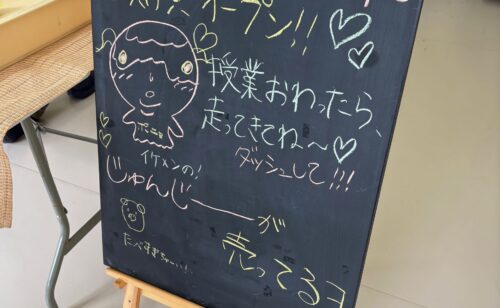 オープン!!
授業おわったら、
走ってきてね〜
ダッシュして!!!
ポニョ
イケメンの!
じゅんじーが
売ってるヨ
たべすぎちゃーい!